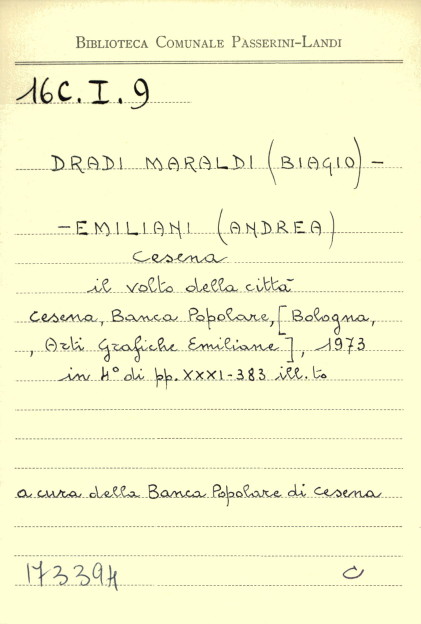 BIBLIOTECA COMUNALE PASSERINI-LANDI
16C.I.9
DRADI MARALDI (BIAGIO) -
- EMILIANI (ANDREA)
Cesena
il volto della città
Cesena, Banca Popolare, [Bologna,
, Arti Grafiche Emiliane], 1973
in 4° di pp. XXXI-383 ill.to
a cura della Banca Popolare di Cesena
173394 C